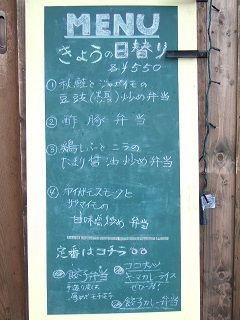 MENU
きょうの日替り
各¥550
①秋鮭とジャガイモの
豆豉炒め弁当
②酢豚弁当
③鶏レバーとニラの
たまり醤油炒め弁当
④
サツマイモの
甘味噌炒め弁当
定番はコチラ
餃子弁当
ココナッツ
キーマカレーライス
餃子カレー弁当